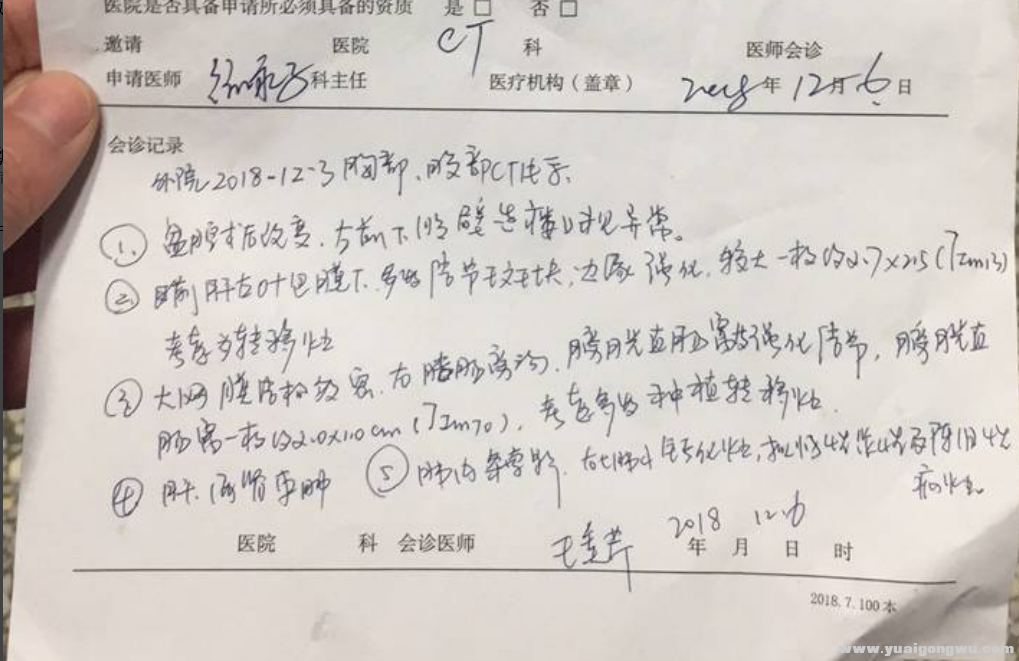 医院是否具备申请所必须具备的资质 是 □ 否 □
邀请 医院 CT 科 医师会诊
申请医师 科主任 医疗机构（盖章） 2018年12月6日
会诊记录
外院2018-12-3胸部、腹部CT片示
①. 盆腔术后改变，右前下腹壁造瘘口未见异常。
② 肝右叶包膜下多发结节，边缘强化，较大一枚约2.7×2.5（Im13）
考虑为转移灶
③ 大网膜结构紊，右结肠旁沟、膀胱直肠窝强化结节，膀胱直
肠窝一枚约2.0×1.0cm（Im70），考虑多发种植转移灶.
④ 肝、肾囊肿 ⑤ 肺内条索影，右肺钙化灶，
病灶。
医院 科 会诊医师 2018年 12月 6日 时
2018.7.100本
www.yuaigongwu.com